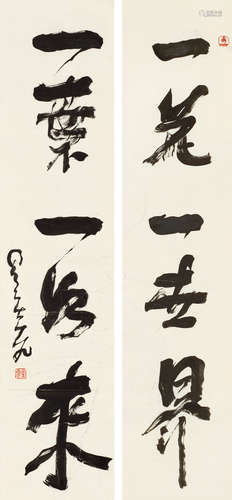 一花一世界
一葉一如來